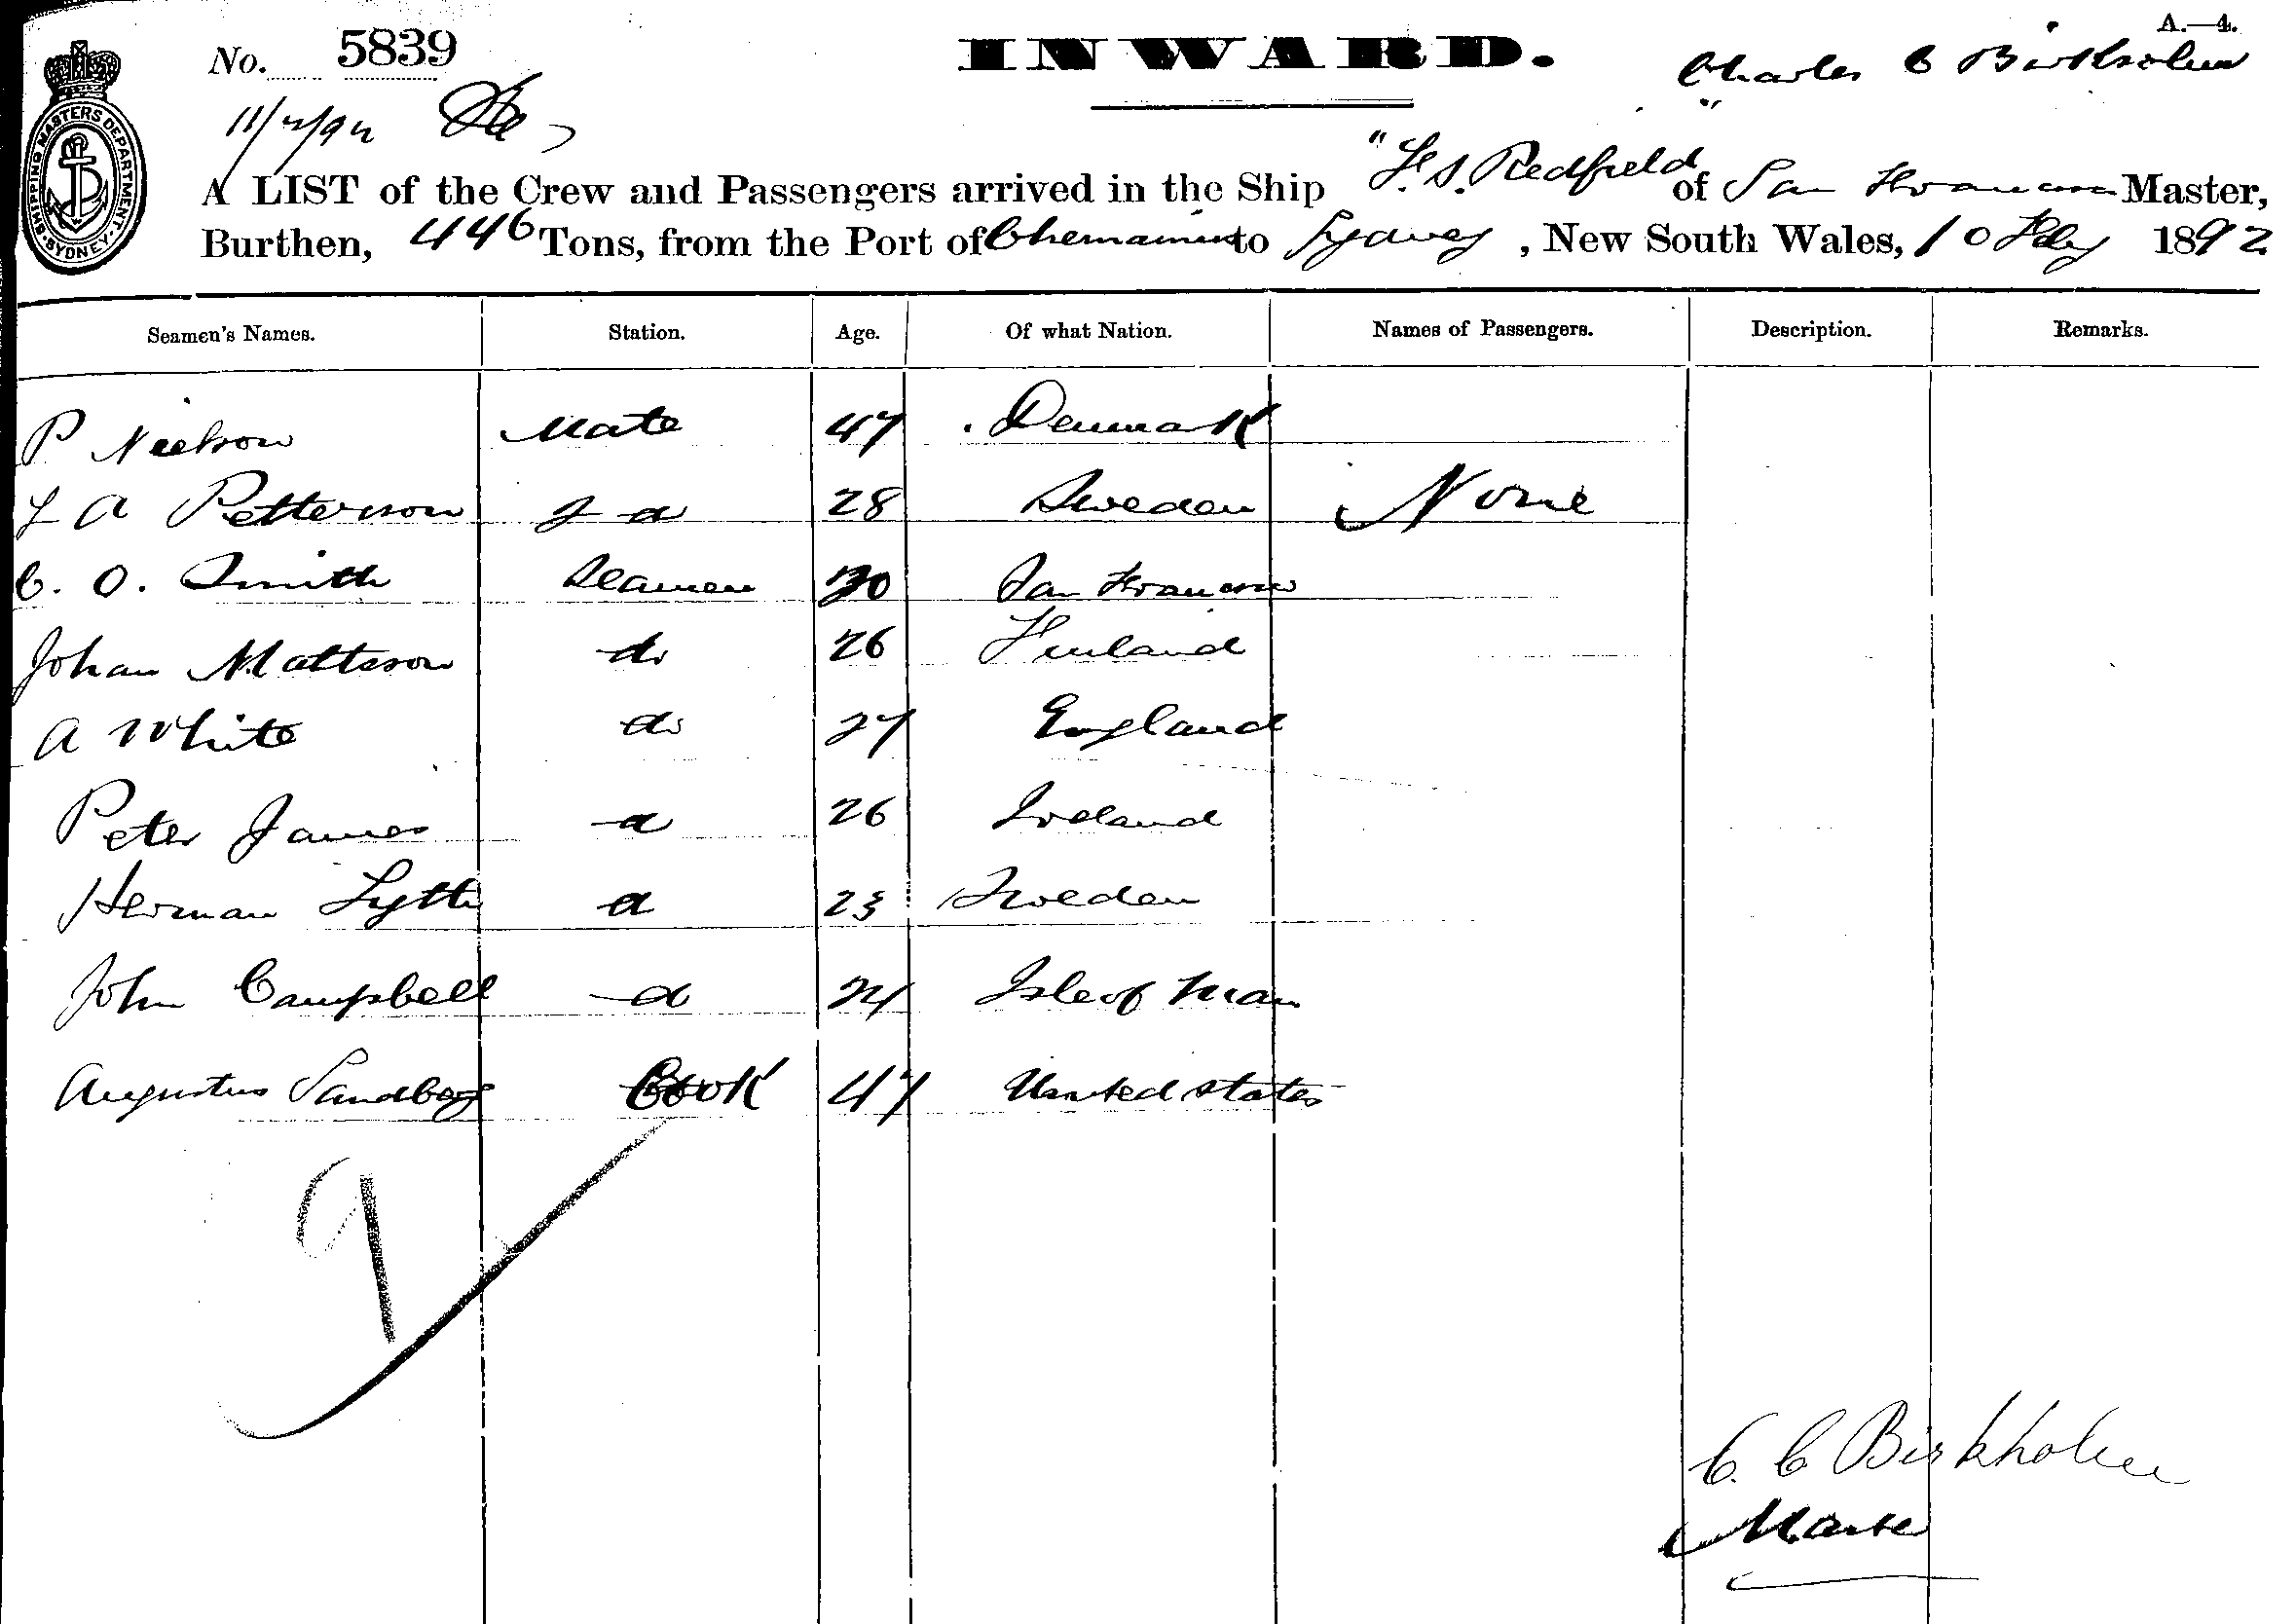 A.—4.
No. 5839
INWARD.
Charles C Birkholm
11/2/92
SHIPPING MASTERS DEPARTMENT. SYDNEY.
A LIST of the Crew and Passengers arrived in the Ship "F. S. Redfield" of San Francisco Master,
Burthen, 446 Tons, from the Port of Chemainus to Sydney, New South Wales, 10 Feby 1892
Seamen's Names. Station. Age. Of what Nation. Names of Passengers. Description. Remarks.
P Nielson Mate 47 Denmark
L A Petterson 2 d 28 Sweden None
C. O. Smith Seamen 30 San Francisco
Johan Mattsson do 26 Finland
A White do 27 England
Peter James d 26 Ireland
Herman d 23 Sweden
John Campbell d 24 Isle of Man
Augustus Sandberg Cook 47 United States
9
C. C Birkholm
Master